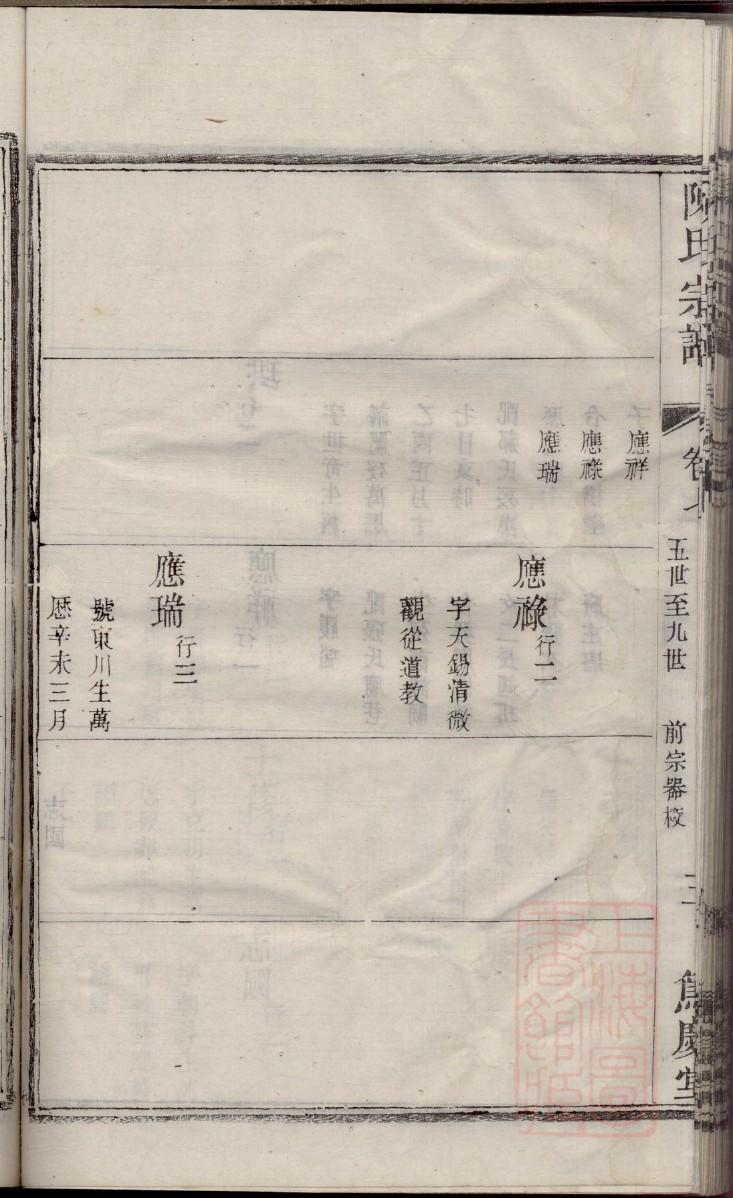 陳氏宗譜
卷七
五世至九世
前宗器校
三
雋慶堂
應祥
應祿
應瑞
應祿 行二
字天錫清微
觀從道教
應瑞 行三
號東川生萬
歷辛未三月
上海圖
書館藏